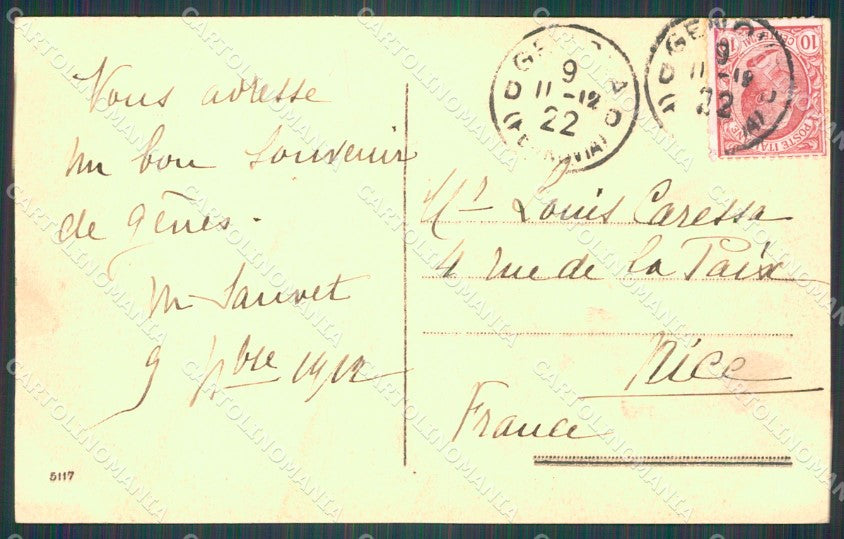 Vous adresse
un bon souvenir
de Gênes.
M Sauvet
9 9bre 1912
5117
GENOVA
9
11-12
22
(FERROVIA)
GENOVA
9
11-12
22
10
POSTE ITALIANE
Mr Louis Caressa
4 rue de la Paix
Nice
France
CARTOLINOMANIA